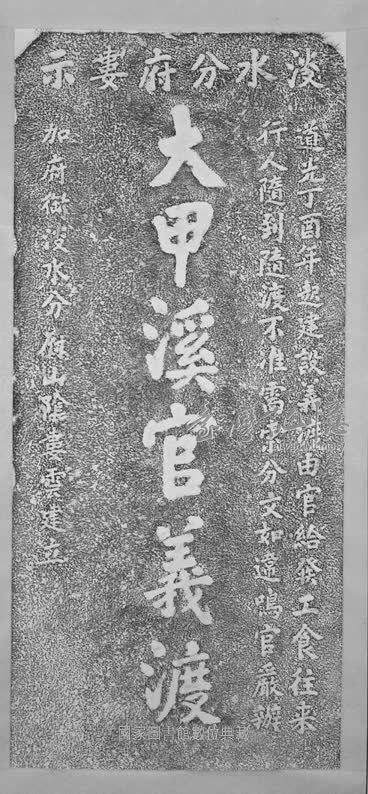 淡水分府婁示
道光丁酉年起建設義渡由官給發工食往来
行人隨到隨渡不准需索分文如違鳴官嚴辦
大甲溪官義渡
加府銜淡水分府山陰婁雲建立
國家圖書館數位典藏